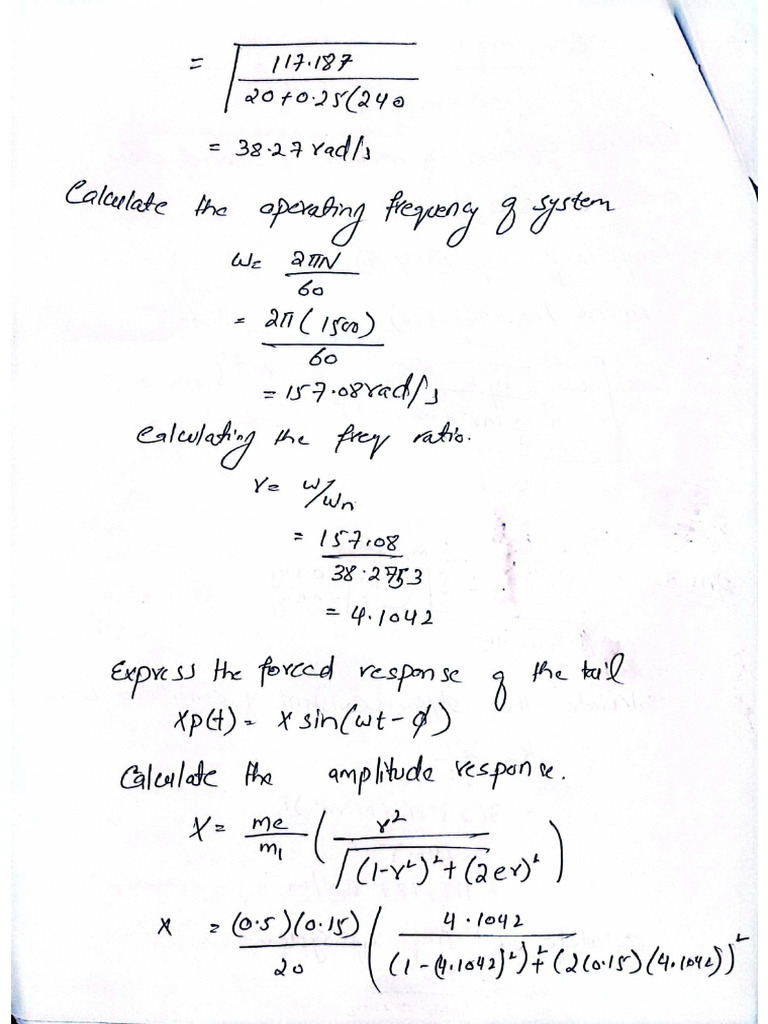 = √117.187 / 20+0.25(240
= 38.27 rad/s
Calculate the operating frequency of system
ω= 2πN / 60
= 2π(1500) / 60
= 157.08 rad/s
Calculating the freq ratio.
r= ω/ωn
= 157.08 / 38.2753
= 4.1042
Express the forced response of the tail
xp(t) = x sin(ωt-φ)
Calculate the amplitude response.
X = me / m1 ( r² / √(1-r²)²+(2er)² )
x = (0.5)(0.15) / 20 ( 4.1042 / (1-(4.1042)²)²+(2(0.15)(4.1042))²